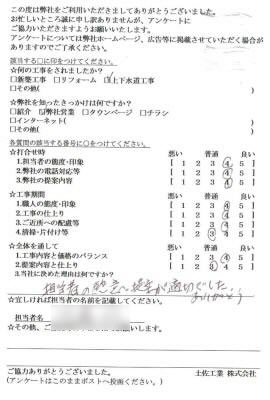 この度は弊社をご利用いただきましてありがとうございました。
お忙しいところ誠に申し訳ありませんが、アンケートに
ご協力いただきますようお願いいたします。
アンケートについては弊社ホームページ、広告等に掲載させていただく場合が
ありますのでご了承ください。
該当する□に印をつけてください。
☆何の工事をされましたか?
□新築工事 □リフォーム ☑上下水道工事
□その他(
☆弊社を知ったきっかけは何ですか?
□紹介 ☑弊社営業 □タウンページ □チラシ
□インターネット(
□その他(
各質問の該当する番号に○をつけてください。
☆打合せ時 悪い 普通 良い
1.担当者の態度・印象 [ 1 2 3 4 5 ]
2.弊社の電話対応等 [ 1 2 3 4 5 ]
3.弊社の提案内容 [ 1 2 3 4 5 ]
☆工事期間 悪い 普通 良い
1.職人の態度・印象 [ 1 2 3 4 5 ]
2.工事の仕上り [ 1 2 3 4 5 ]
3.ご近所への配慮等 [ 1 2 3 4 5 ]
4.清掃・片付け等 [ 1 2 3 4 5 ]
☆全体を通して 悪い 普通 良い
1.工事内容と価格のバランス [ 1 2 3 4 5 ]
2.提案内容と仕上り [ 1 2 3 4 5 ]
3.当社に決めた理由は何ですか?
担当者の 提案が適切でした。
ありがとう
☆宜しければ担当者の名前を記載してください。
担当者名
☆その他、ご お願いします。
ご協力ありがとうございました。 土佐工業 株式会社
(アンケートはこのままポストへ投函ください。)